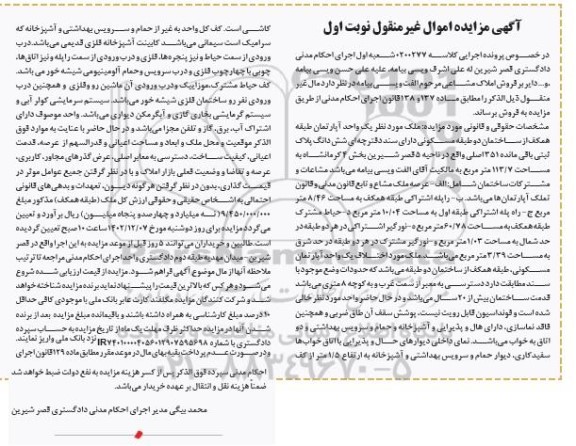 آگهی مزایده اموال غیرمنقول نوبت اول
در خصوص پرونده اجرایی کلاسه ۰۲۰۰۲۷۷ شعبه اول اجرای احکام مدنی
دادگستری قصر شیرین له علی اشرف ویسی پیامه، علیه علی حسن ویسی پیامه
و... دایر بر فروش املاک مشاعی مرحوم الفت ویسی پیامه در نظر دارد مال غیر
منقول ذیل الذکر را مطابق ماده ۱۳۷ و ۱۳۸ قانون اجرای احکام مدنی از طریق
مزایده به فروش برساند.
مشخصات حقوقی و قانونی مورد مزایده: ملک مورد نظر یک واحد آپارتمان طبقه
همکف از ساختمان دو طبقه مسکونی دارای سند دفترچه‌ای شش دانگ پلاک
ثبتی باقی مانده ۱۳۵۱ اصلی واقع در ناحیه ۵ قصر شیرین بخش ۴ کرمانشاه به
مساحت ۱۱۳/۷ متر مربع به مالکیت آقای الفت ویسی پیامه می‌باشد مشاعات و
مشترکات ساختمان شامل: الف- عرصه ملک مشاع و تابع قانون مدنی و قانون
تملک آپارتمان‌ها می باشد. ب- راپله اشتراکی طبقه همکف به مساحت ۸/۴۶ متر
مربع ج- راه پله اشتراکی طبقه اول به مساحت ۱۰/۰۴ متر مربع د- حیاط مشترک
طبقه همکف به مساحت ۶۰/۷۸ متر مربع ه- نورگیر اشتراکی در هر دو طبقه در
حد شمال به مساحت ۱/۰۳ متر مربع و- نورگیر مشترک در هر دو طبقه در حد شرق
به مساحت ۳/۳۹ متر مربع می‌باشد. ملک مورد اختلاف یک واحد آپارتمان
مسکونی، طبقه همکف از ساختمان دو طبقه می باشد که حدودات وضع موجود با
سند مطابقت دارد دسترسی به معبر از سمت غرب و به کوچه ۸ متری می باشد
قدمت ساختمان بیش از ۲۰ سال می‌باشد و در حال حاضر واحد مورد نظر خالی
شده است و فونداسیون قابل رویت نیست، پوشش سقف آن طاق ضربی و همچنین
فاقد نماسازی، دارای هال و پذیرایی و آشپزخانه و حمام و سرویس بهداشتی و دو
اتاق به خواب می‌باشد. نمای داخلی دیوارهای حال و پذیرایی با اتاق خواب‌ها
سفیدکاری، دیوار حمام و سرویس بهداشتی و آشپزخانه به ارتفاع ۱/۵ متر از کف
کاشی است. کف کل واحد به غیر از حمام و سرویس بهداشتی و آشپزخانه که
سرامیک است سیمانی می‌باشد کابینت آشپزخانه فلزی قدیمی می‌باشد. درب
ورودی از سمت حیاط و نیز پنجره‌ها، فلزی و درب ورودی از سمت راپله و نیز اتاق‌ها،
چوبی با چهارچوب فلزی و درب سرویس و حمام آلومینیومی شیشه خور می باشد.
کف حیاط مشترک، موزاییک و درب ورودی آن ماشین رو و فلزی و همچنین درب
ورودی نفر رو ساختمان فلزی شیشه خور می باشد. سیستم سرمایشی کولر آبی و
سیستم گرمایشی بخاری گازی و آبگرمکن دیواری می‌باشد. واحد موصوف دارای
اشتراک آب، برق، گاز و تلفن مجزا می‌باشد و در حال حاضر با عنایت به موارد فوق
الذکر موقعیت و محل ملک و ابعاد و مساحت اعیانی و قدرالسهم از عرصه، قدمت
اعیانی، کیفیت ساخت، دسترسی به معابر اصلی، عرض گذرهای مجاور، کاربری،
عرضه و تقاضا و وضعیت فعلی بازار املاک و با در نظر گرفتن جمیع عوامل موثر در
قیمت گذاری، بدون در نظر گرفتن هر گونه دیون، تعهدات و بدهی‌های قانونی
احتمالی به اشخاص حقیقی و حقوقی ارزش کل ملک (طبقه همکف) مذکور مبلغ
۹/۴۵۰/۰۰۰/۰۰۰ (نه میلیارد و چهارصد و پنجاه میلیون) ریال برآورد و تعیین
می گردد مزایده برای روز دوشنبه مورخ ۱۴۰۲/۱۲/۰۷ ساعت ۱۰ صبح تعیین گردیده
است. طالبین و خریداران می توانند ۵ روز قبل از موعد مزایده به این اجرا واقع در قصر
شیرین- میدان مهدیه طبقه دوم دادگستری واحد اجرای احکام مدنی مراجعه تا ترتیب
ملاحظه آنها از مال موضوع آگهی فراهم شود. مزایده از قیمت ارزیابی شده شروع
می‌شود و هر کس که بالاترین قیمت را پیشنهاد نماید برنده مزایده شناخته خواهد
شد و شرکت کنندگان مزایده مکلفند کارت عابر بانک ملی با موجودی کافی حداقل
۱۰ درصد مبلغ کارشناسی به همراه داشته باشند و باقیمانده مبلغ مزایده بعد از برنده
شدن آنها در مزایده حداکثر ظرف مهلت یک ماه از تاریخ مزایده به حساب سپرده
دادگستری با شماره نزد بانک ملی واریز نمایند.
و در صورت عدم پرداخت بقیه بهای مال در موعد مقرر مطابق ماده ۱۲۹ قانون اجرای
احکام مدنی سپرده فوق الذکر پس از کسر هزینه مزایده به نفع دولت ضبط خواهد شد
ضمنا هزینه نقل و انتقال بر عهده خریدار می‌باشد.
محمد بیگی مدیر اجرای احکام مدنی دادگستری قصر شیرین